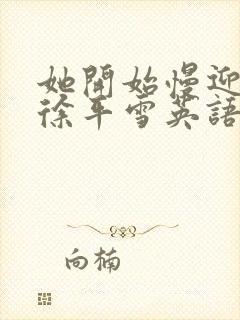 她開始慢迎
徐平雪英語
向楠